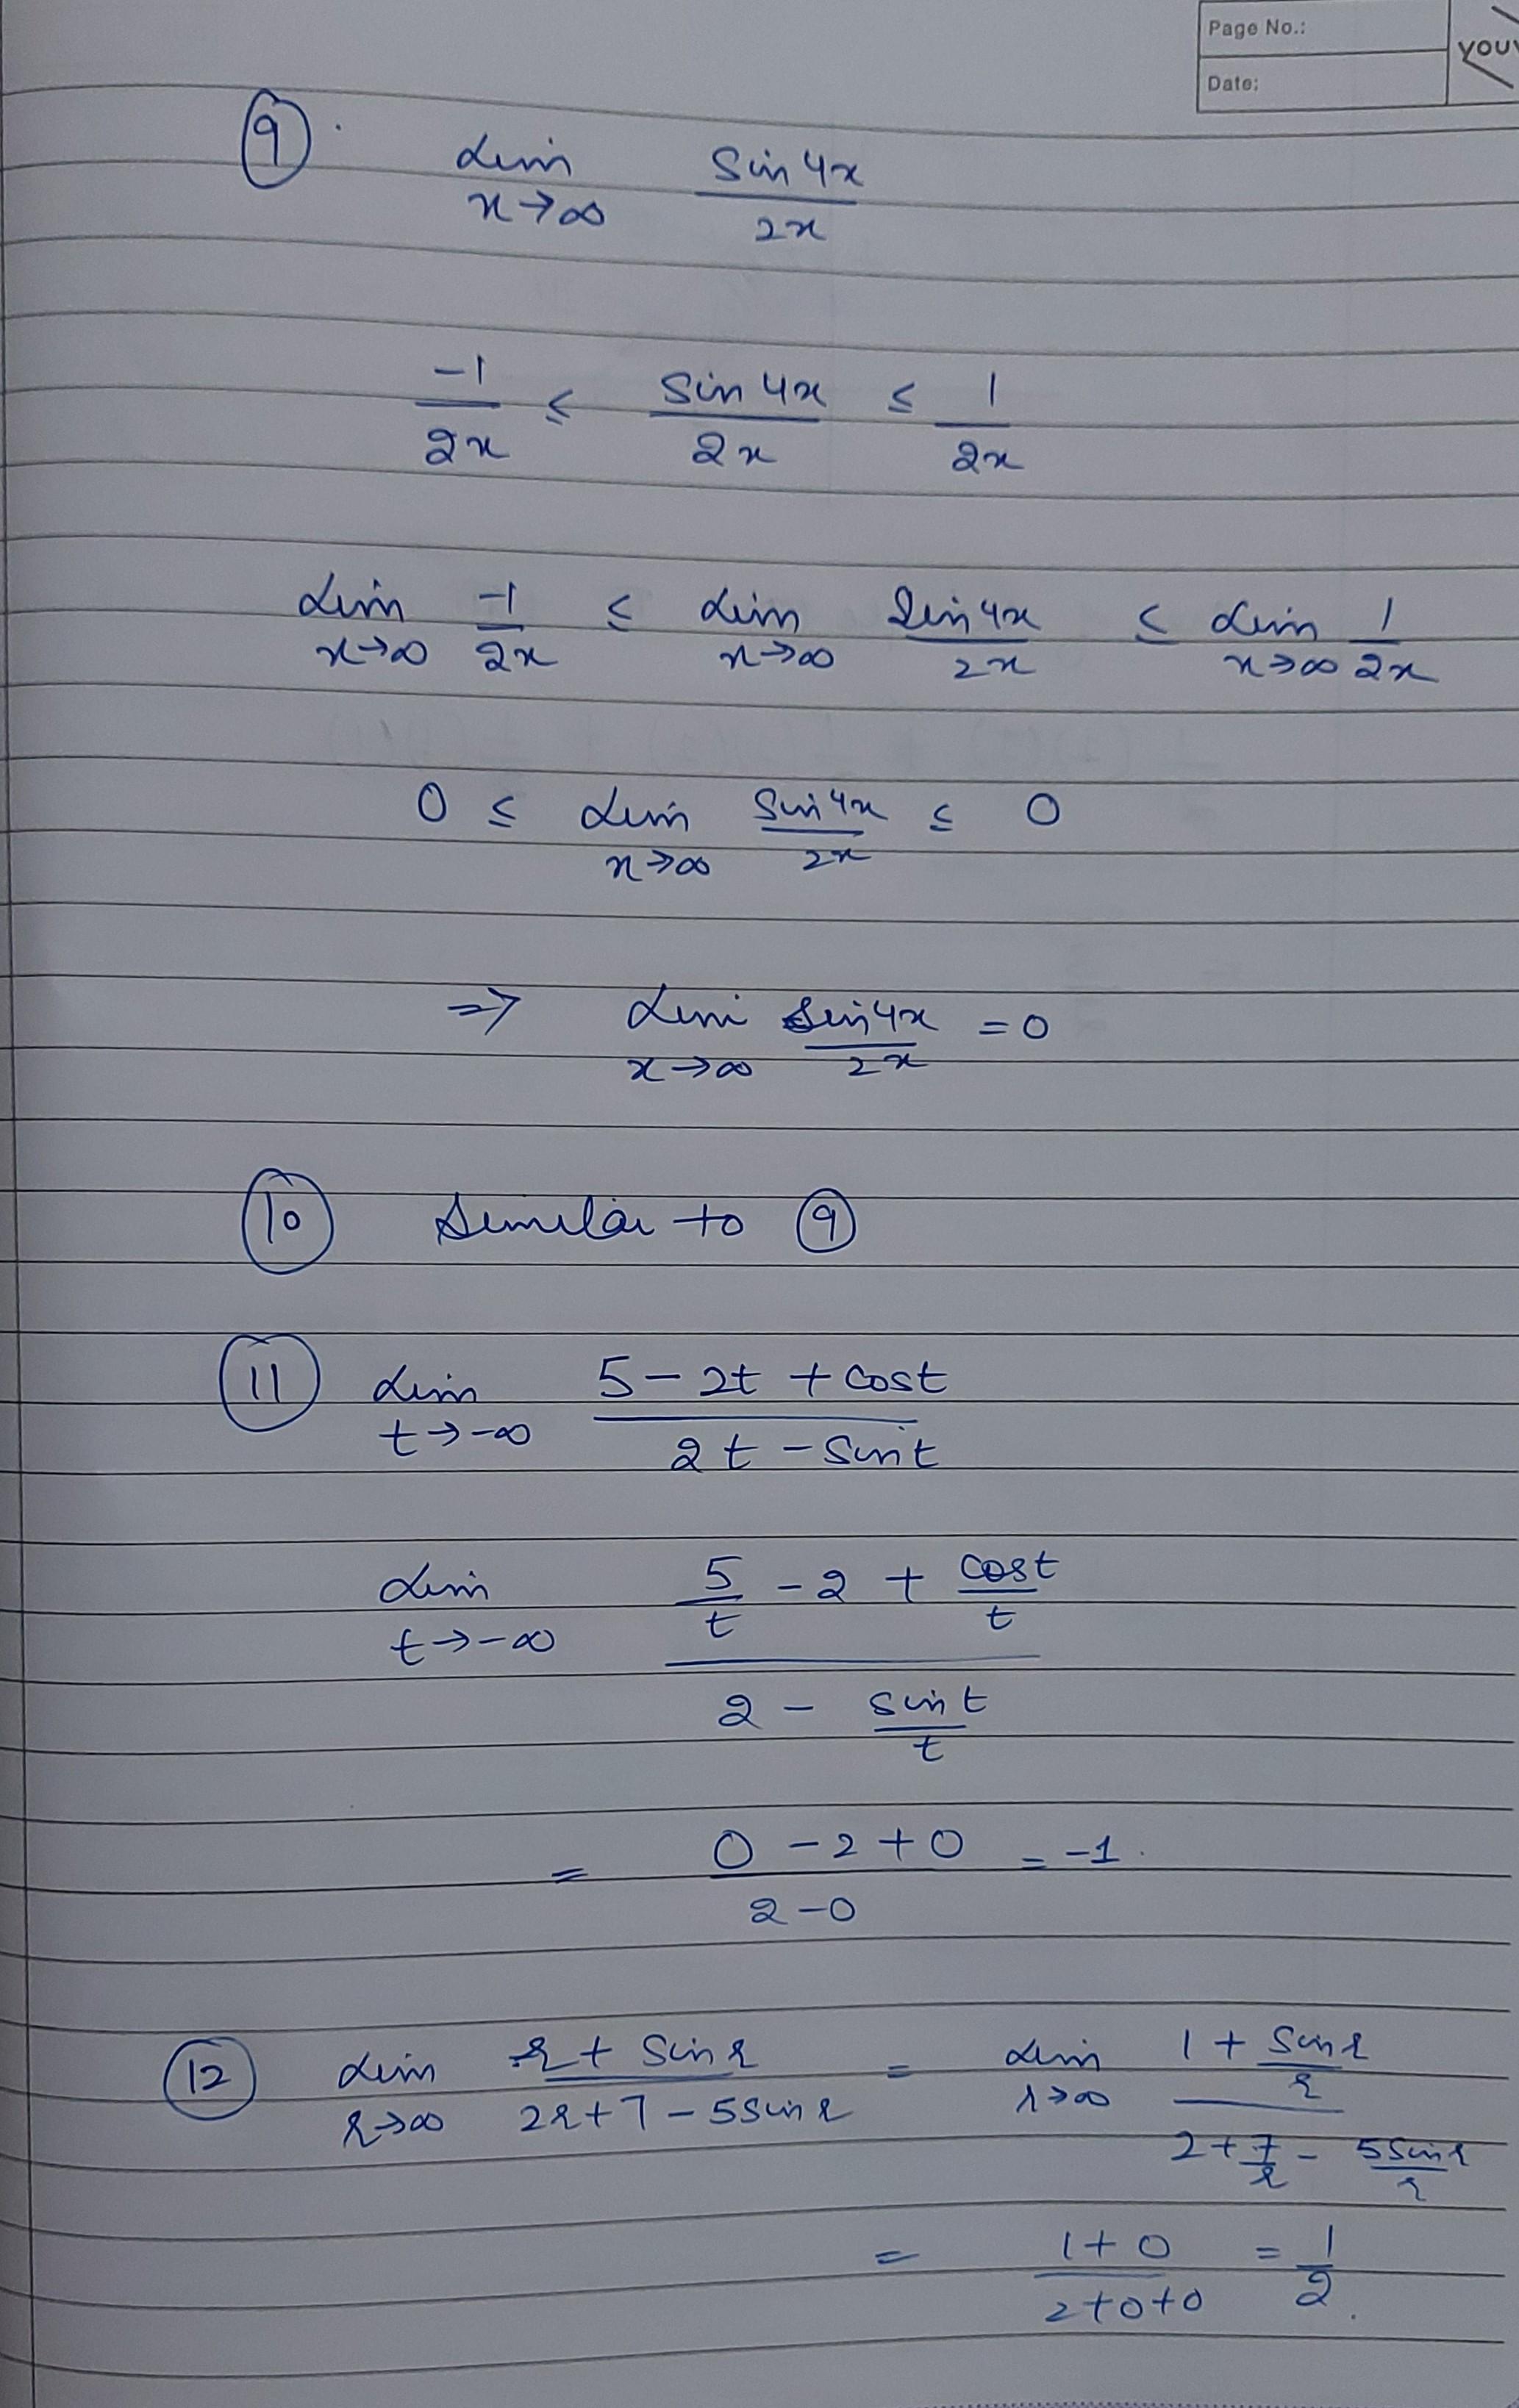 Page No.:
Date:
YOU
9. Lim x→∞ Sin 4x / 2x
-1/2x ≤ Sin 4x / 2x ≤ 1/2x
Lim x→∞ -1/2x ≤ Lim x→∞ Sin 4x / 2x ≤ Lim x→∞ 1/2x
0 ≤ Lim x→∞ Sin 4x / 2x ≤ 0
⇒ Lim x→∞ Sin 4x / 2x = 0
10 Similar to 9
11 Lim t→-∞ (5 - 2t + cost) / (2t - Sint)
Lim t→-∞ (5/t - 2 + cost/t) / (2 - sint/t)
= (0 - 2 + 0) / (2 - 0) = -1.
12 Lim r→∞ (r + Sin r) / (2r + 7 - 5 sin r) = Lim r→∞ (1 + Sin r / r) / (2 + 7/r - 5 Sin r / r)
= (1 + 0) / (2 + 0 + 0) = 1/2.